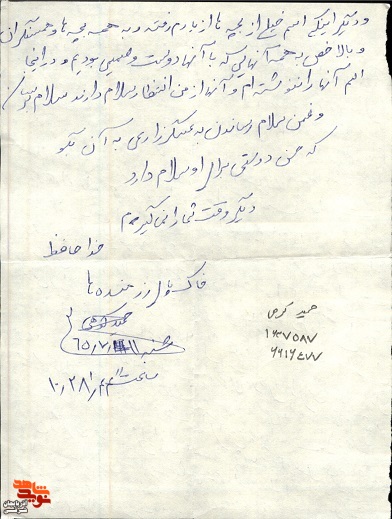 و دیگر اینکه اسم خیلی از بچه ها از یادم رفته و به همه بچه ها و همسنگران
و بالاخص به همه آنهایی که با آنها دوست و صمیمی بودیم و در اینجا
اسم آنها را ننوشته ام و آنها از من انتظار سلام دارند سلام برسان
و ضمن سلام رساندن به عسگر زارعی به آن بگو
که حسن دوستی برای او سلام دارد
دیگر وقت شما را نمی گیرم
خدا حافظ
خاک پای رزمنده ها
حمید کرمی
شنبه ۶۵/۷/
ساعت ۱۰,۲۸
حمید کرمی
۱۶۳۷۵۸۷
۶۶۱۶۲۷۷
شاهد
نوید